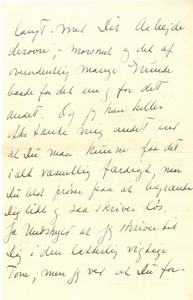 langt med Dit Arbejde
derovre, - morsomt og det af
overordentlig mange Grunde
baade for det ene og for det
andet. Og jeg kan heller
ikke tænke mig andet end
at Du maa kunne faa det
i alt væsentlig færdigt, naar
Du blot prøver paa at begrænse
Dig lidt og saa skriver løs.
Ja Undskyld at jeg skriver til
Dig i den latterlig vigtige
Tone, men jeg ved at Du for-